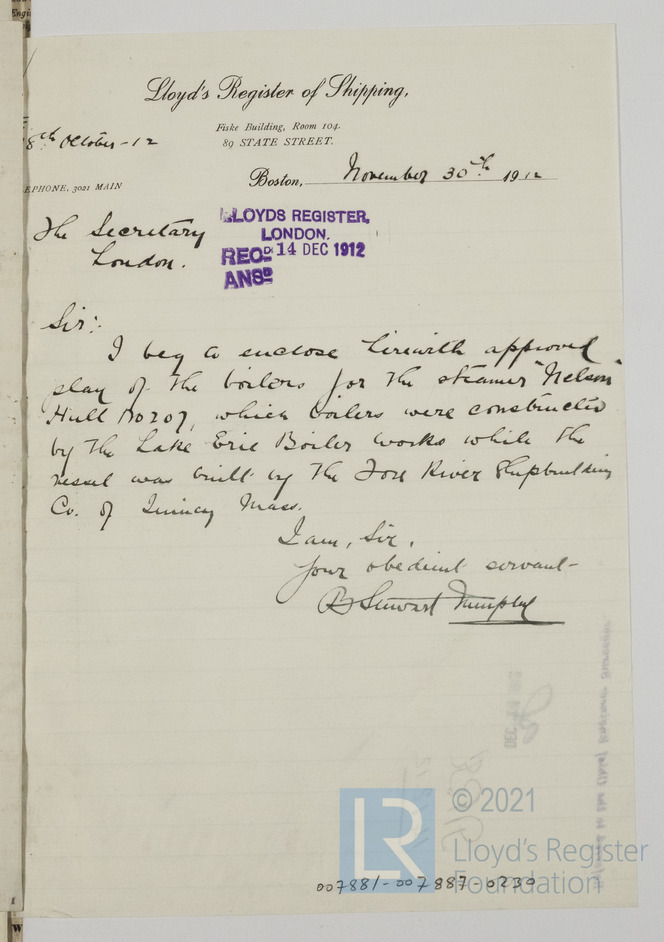 Lloyd's Register of Shipping,
Fiske Building, Room 104.
89 STATE STREET.
8th October - 12
EPHONE, 3021 MAIN
Boston, November 30th 1912
The Secretary
London.
LLOYDS REGISTER,
LONDON.
RECD 14 DEC 1912
ANSD
Sir:
I beg to enclose herewith approved
plan of the boilers for the steamer "Nelson"
Hull No 207, which boilers were constructed
by the Lake Erie Boiler Works while the
vessel was built by the Fore River Shipbuilding
Co. of Quincy Mass.
I am, Sir,
Your obedient servant
Stewart
© 2021
LR
Lloyd's Register
Foundation
007881-007887-0230